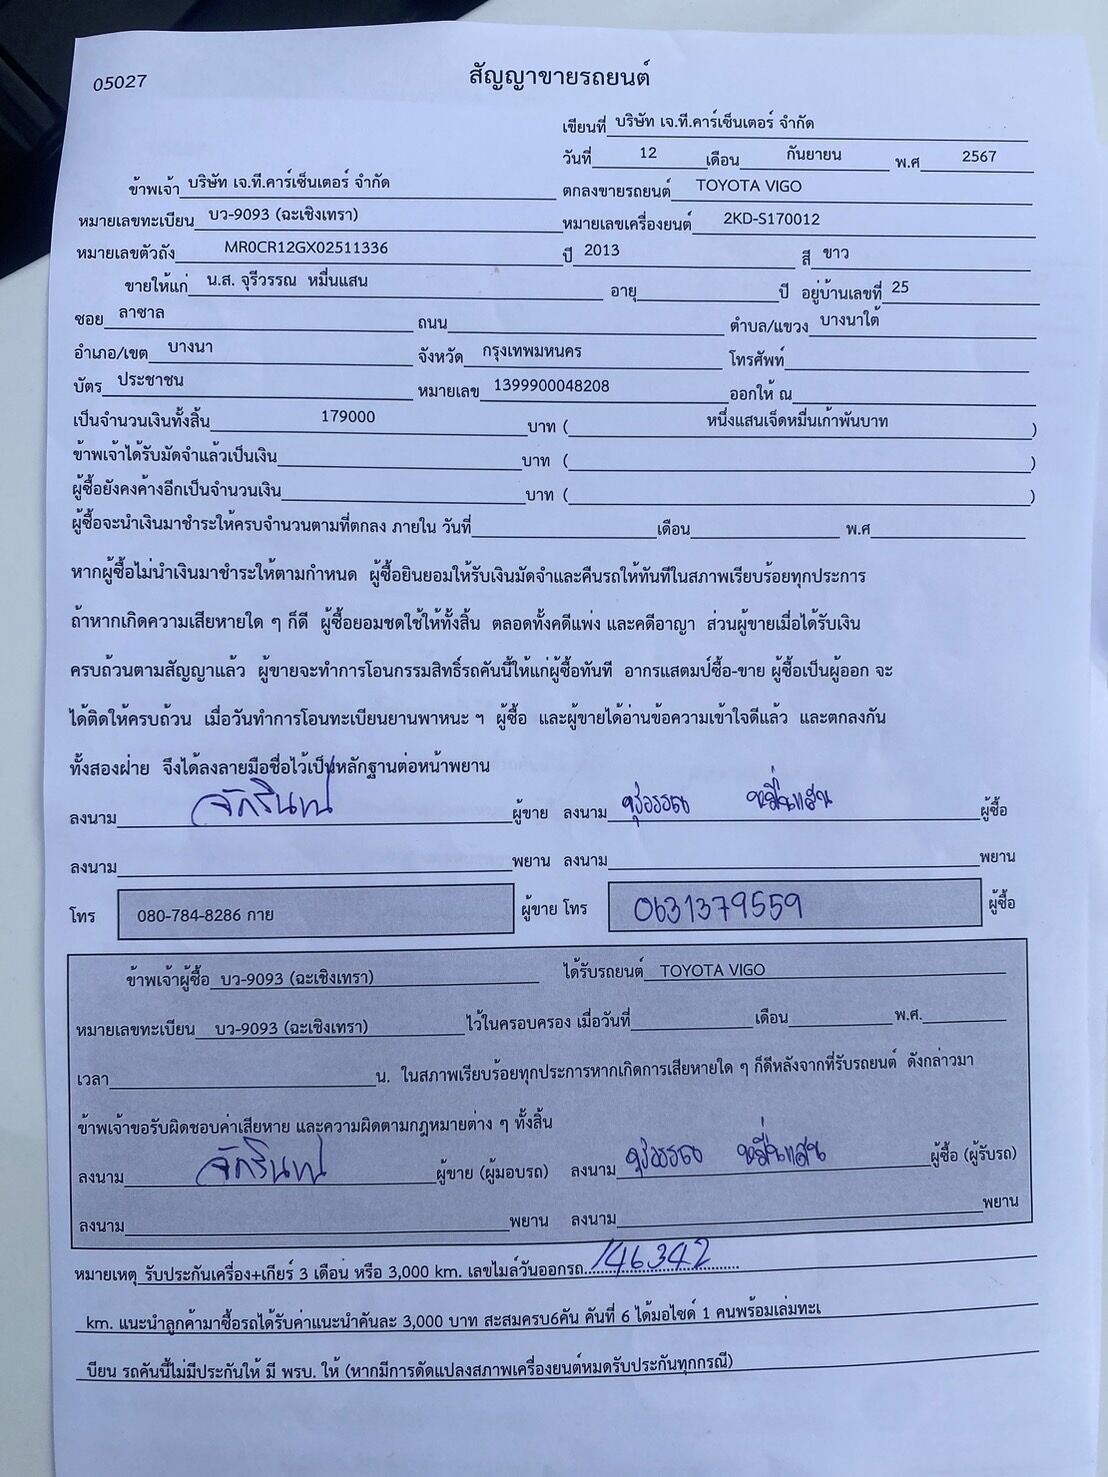 05027
สัญญาขายรถยนต์
เขียนที่ บริษัท เจ.ที.คาร์เซ็นเตอร์ จำกัด
วันที่ 12 เดือน กันยายน พ.ศ 2567
ข้าพเจ้า บริษัท เจ.ที.คาร์เซ็นเตอร์ จำกัด ตกลงขายรถยนต์ TOYOTA VIGO
หมายเลขทะเบียน บว-9093 (ฉะเชิงเทรา) หมายเลขเครื่องยนต์ 2KD-S170012
หมายเลขตัวถัง MR0CR12GX02511336 ปี 2013 สี ขาว
ขายให้แก่ น.ส. จุรีวรรณ หมื่นแสน อายุ ปี อยู่บ้านเลขที่ 25
ซอย ลาซาล ถนน ตำบล/แขวง บางนาใต้
อำเภอ/เขต บางนา จังหวัด กรุงเทพมหนคร โทรศัพท์
บัตร ประชาชน หมายเลข 1399900048208 ออกให้ ณ
เป็นจำนวนเงินทั้งสิ้น 179000 บาท ( หนึ่งแสนเจ็ดหมื่นเก้าพันบาท )
ข้าพเจ้าได้รับมัดจำแล้วเป็นเงิน บาท ( )
ผู้ซื้อยังคงค้างอีกเป็นจำนวนเงิน บาท ( )
ผู้ซื้อจะนำเงินมาชำระให้ครบจำนวนตามที่ตกลง ภายใน วันที่ เดือน พ.ศ
หากผู้ซื้อไม่นำเงินมาชำระให้ตามกำหนด ผู้ซื้อยินยอมให้รับเงินมัดจำและคืนรถให้ทันทีในสภาพเรียบร้อยทุกประการ
ถ้าหากเกิดความเสียหายใด ๆ ก็ดี ผู้ซื้อยอมชดใช้ให้ทั้งสิ้น ตลอดทั้งคดีแพ่ง และคดีอาญา ส่วนผู้ขายเมื่อได้รับเงิน
ครบถ้วนตามสัญญาแล้ว ผู้ขายจะทำการโอนกรรมสิทธิ์รถคันนี้ให้แก่ผู้ซื้อทันที อากรแสตมป์ซื้อ-ขาย ผู้ซื้อเป็นผู้ออก จะ
ได้ติดให้ครบถ้วน เมื่อวันทำการโอนทะเบียนยานพาหนะ ฯ ผู้ซื้อ และผู้ขายได้อ่านข้อความเข้าใจดีแล้ว และตกลงกัน
ทั้งสองฝ่าย จึงได้ลงลายมือชื่อไว้เป็นหลักฐานต่อหน้าพยาน
ลงนาม จักรินทร์ ผู้ขาย ลงนาม จุรีวรรณ หมื่นแสน ผู้ซื้อ
ลงนาม พยาน ลงนาม พยาน
โทร 080-784-8286 กาย ผู้ขาย โทร 0631379559 ผู้ซื้อ
ข้าพเจ้าผู้ซื้อ บว-9093 (ฉะเชิงเทรา) ได้รับรถยนต์ TOYOTA VIGO
หมายเลขทะเบียน บว-9093 (ฉะเชิงเทรา) ไว้ในครอบครอง เมื่อวันที่ เดือน พ.ศ.
เวลา น. ในสภาพเรียบร้อยทุกประการหากเกิดการเสียหายใด ๆ ก็ดีหลังจากที่รับรถยนต์ ดังกล่าวมา
ข้าพเจ้าขอรับผิดชอบค่าเสียหาย และความผิดตามกฎหมายต่าง ๆ ทั้งสิ้น
ลงนาม จักรินทร์ ผู้ขาย (ผู้มอบรถ) ลงนาม จุรีวรรณ หมื่นแสน ผู้ซื้อ (ผู้รับรถ)
ลงนาม พยาน ลงนาม พยาน
หมายเหตุ รับประกันเครื่อง+เกียร์ 3 เดือน หรือ 3,000 km. เลขไมล์วันออกรถ 146342
km. แนะนำลูกค้ามาซื้อรถได้รับค่าแนะนำคันละ 3,000 บาท สะสมครบ6คัน คันที่ 6 ได้มอไซด์ 1 คนพร้อมเล่มทะเ
บียน รถคันนี้ไม่มีประกันให้ มี พรบ. ให้ (หากมีการดัดแปลงสภาพเครื่องยนต์หมดรับประกันทุกกรณี)